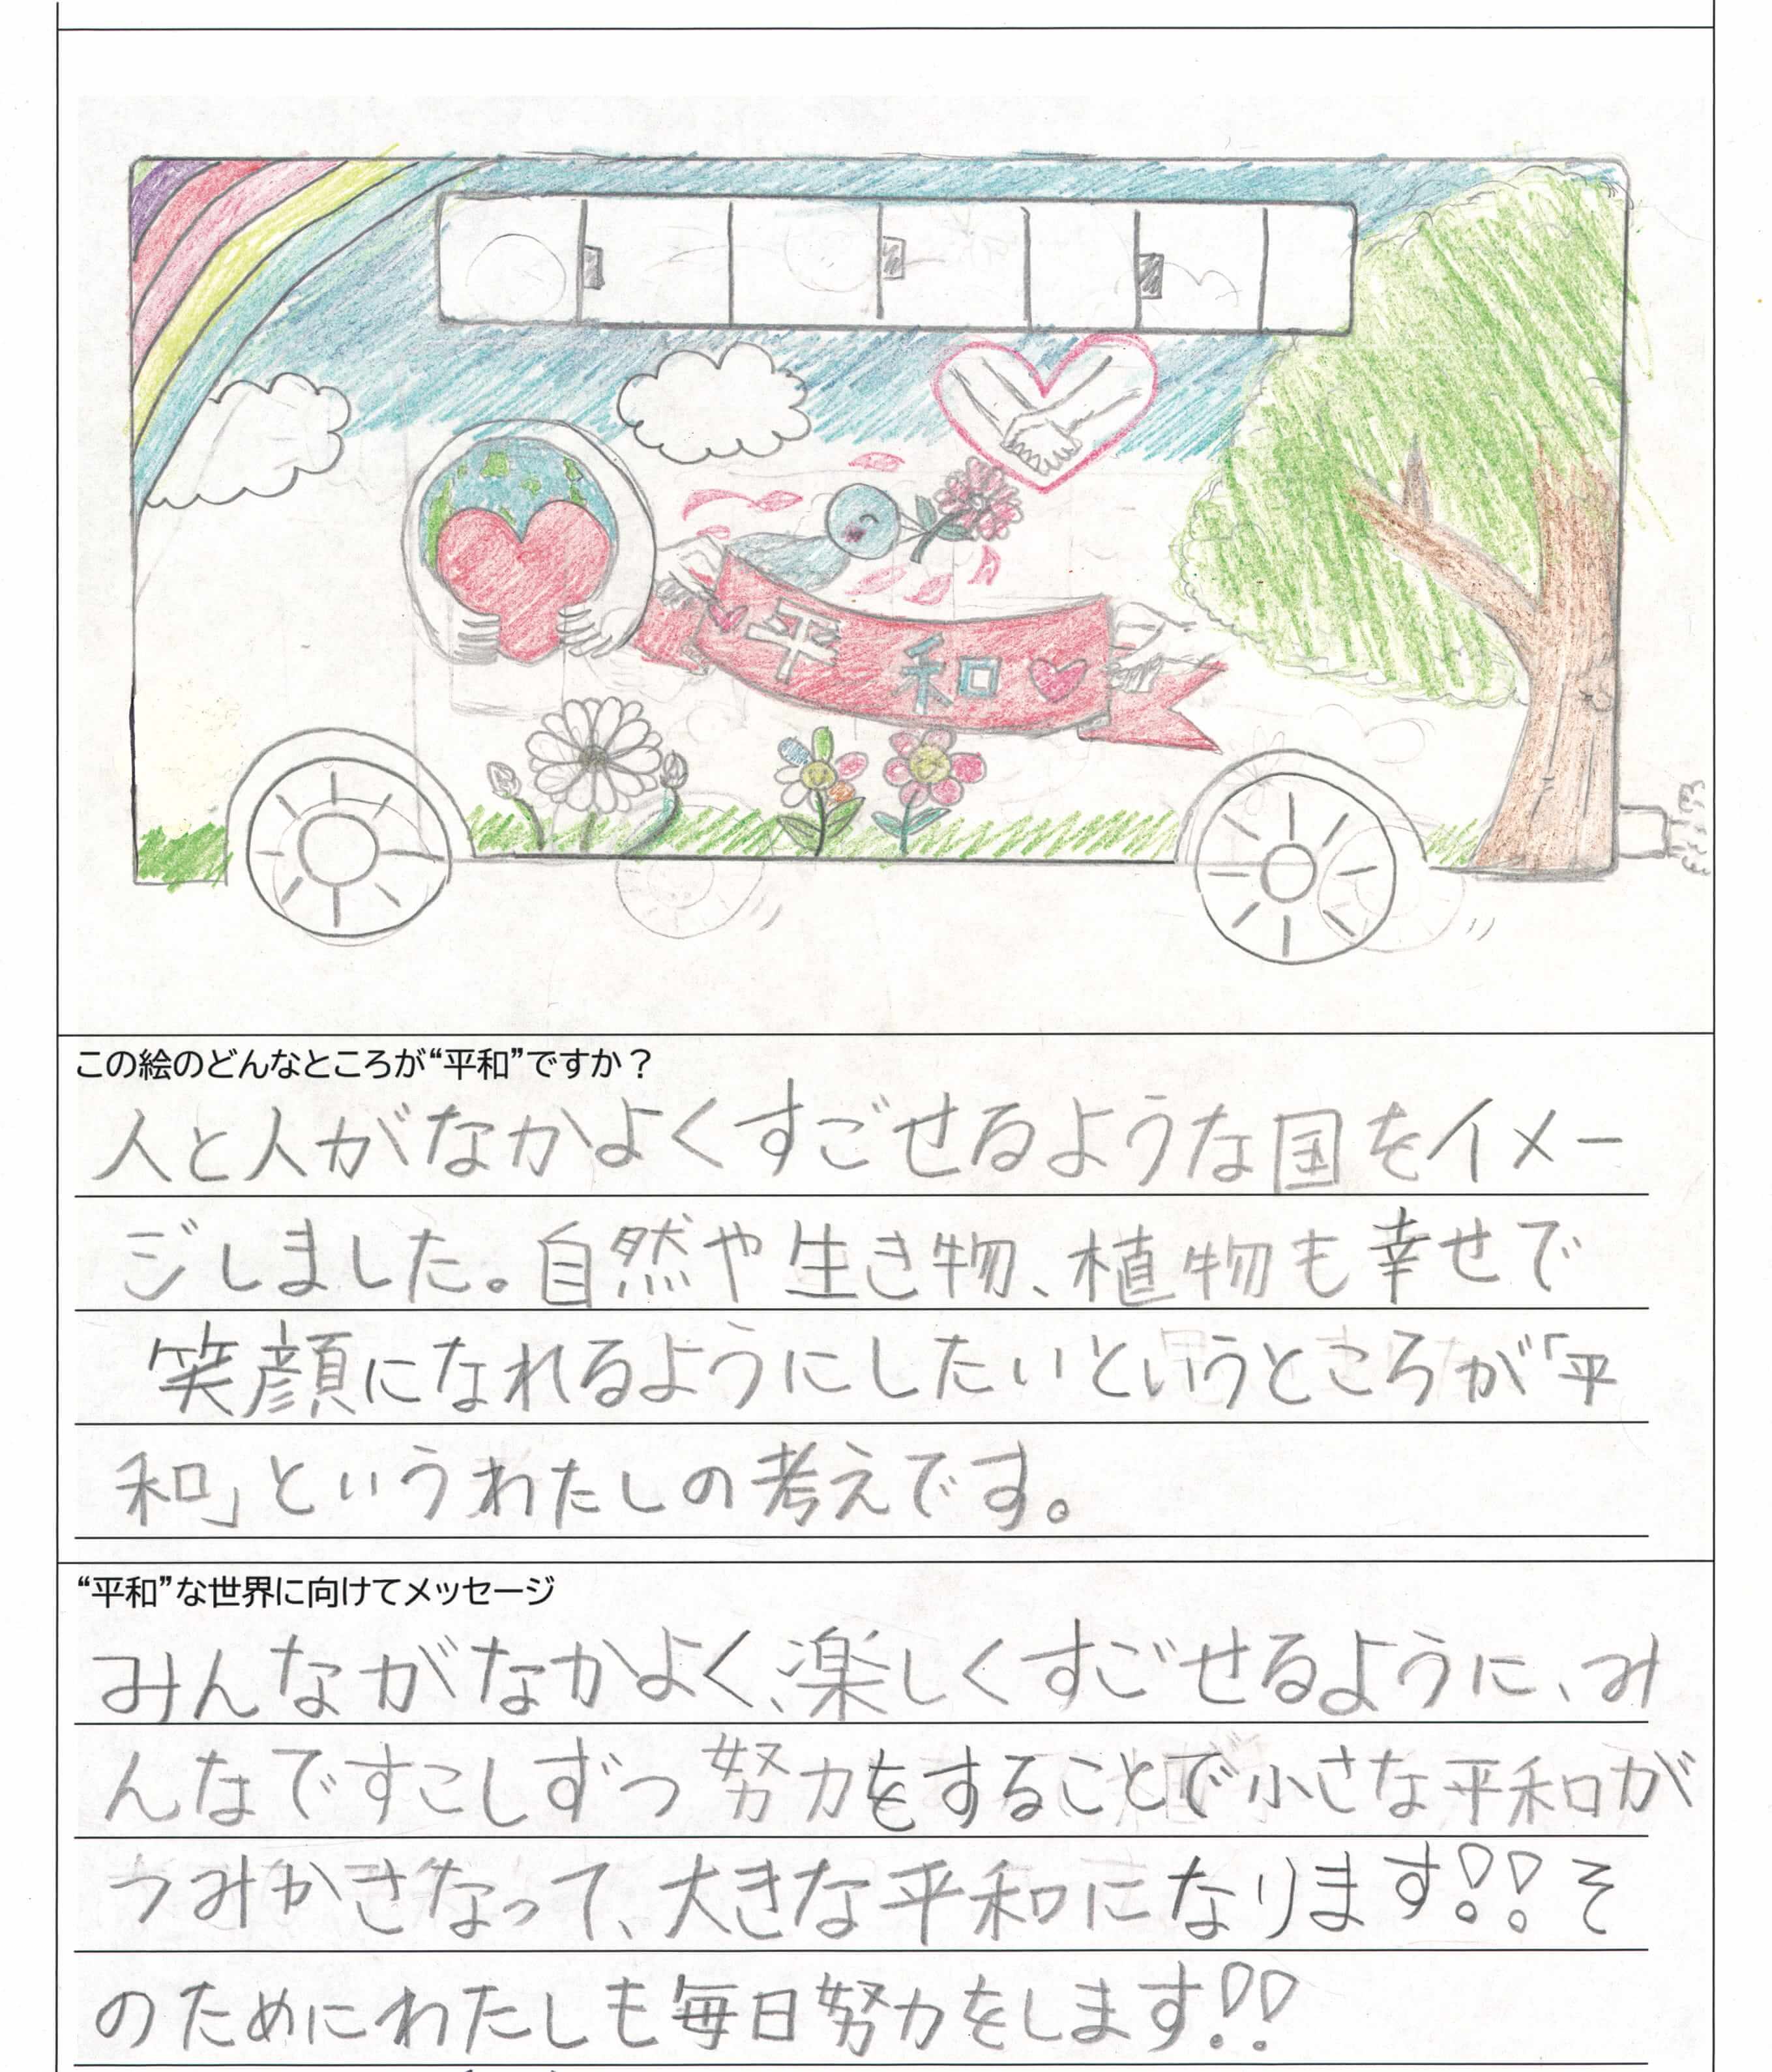 平和
この絵のどんなところが“平和”ですか？
人と人がなかよくすごせるような国をイメー
ジしました。自然や生き物、植物も幸せで
笑顔になれるようにしたいというところが「平
和」というわたしの考えです。
“平和”な世界に向けてメッセージ
みんながなかよく、楽しくすごせるように、み
んなですこしずつ努力をすることで小さな平和が
つみかさなって、大きな平和になります!!そ
のためにわたしも毎日努力をします!!